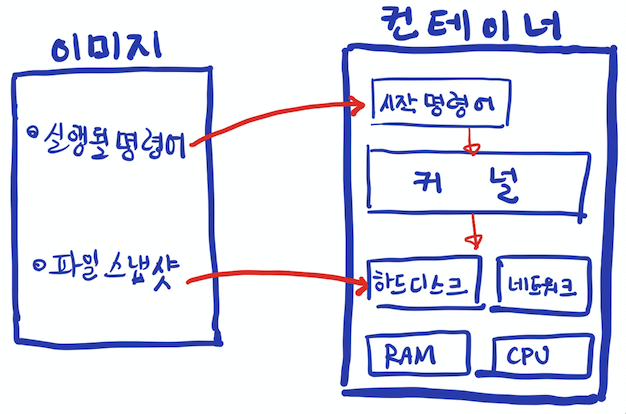 이미지
실행될 명령어
파일 스냅샷
컨테이너
시작 명령어
커널
하드디스크
네트워크
RAM
CPU